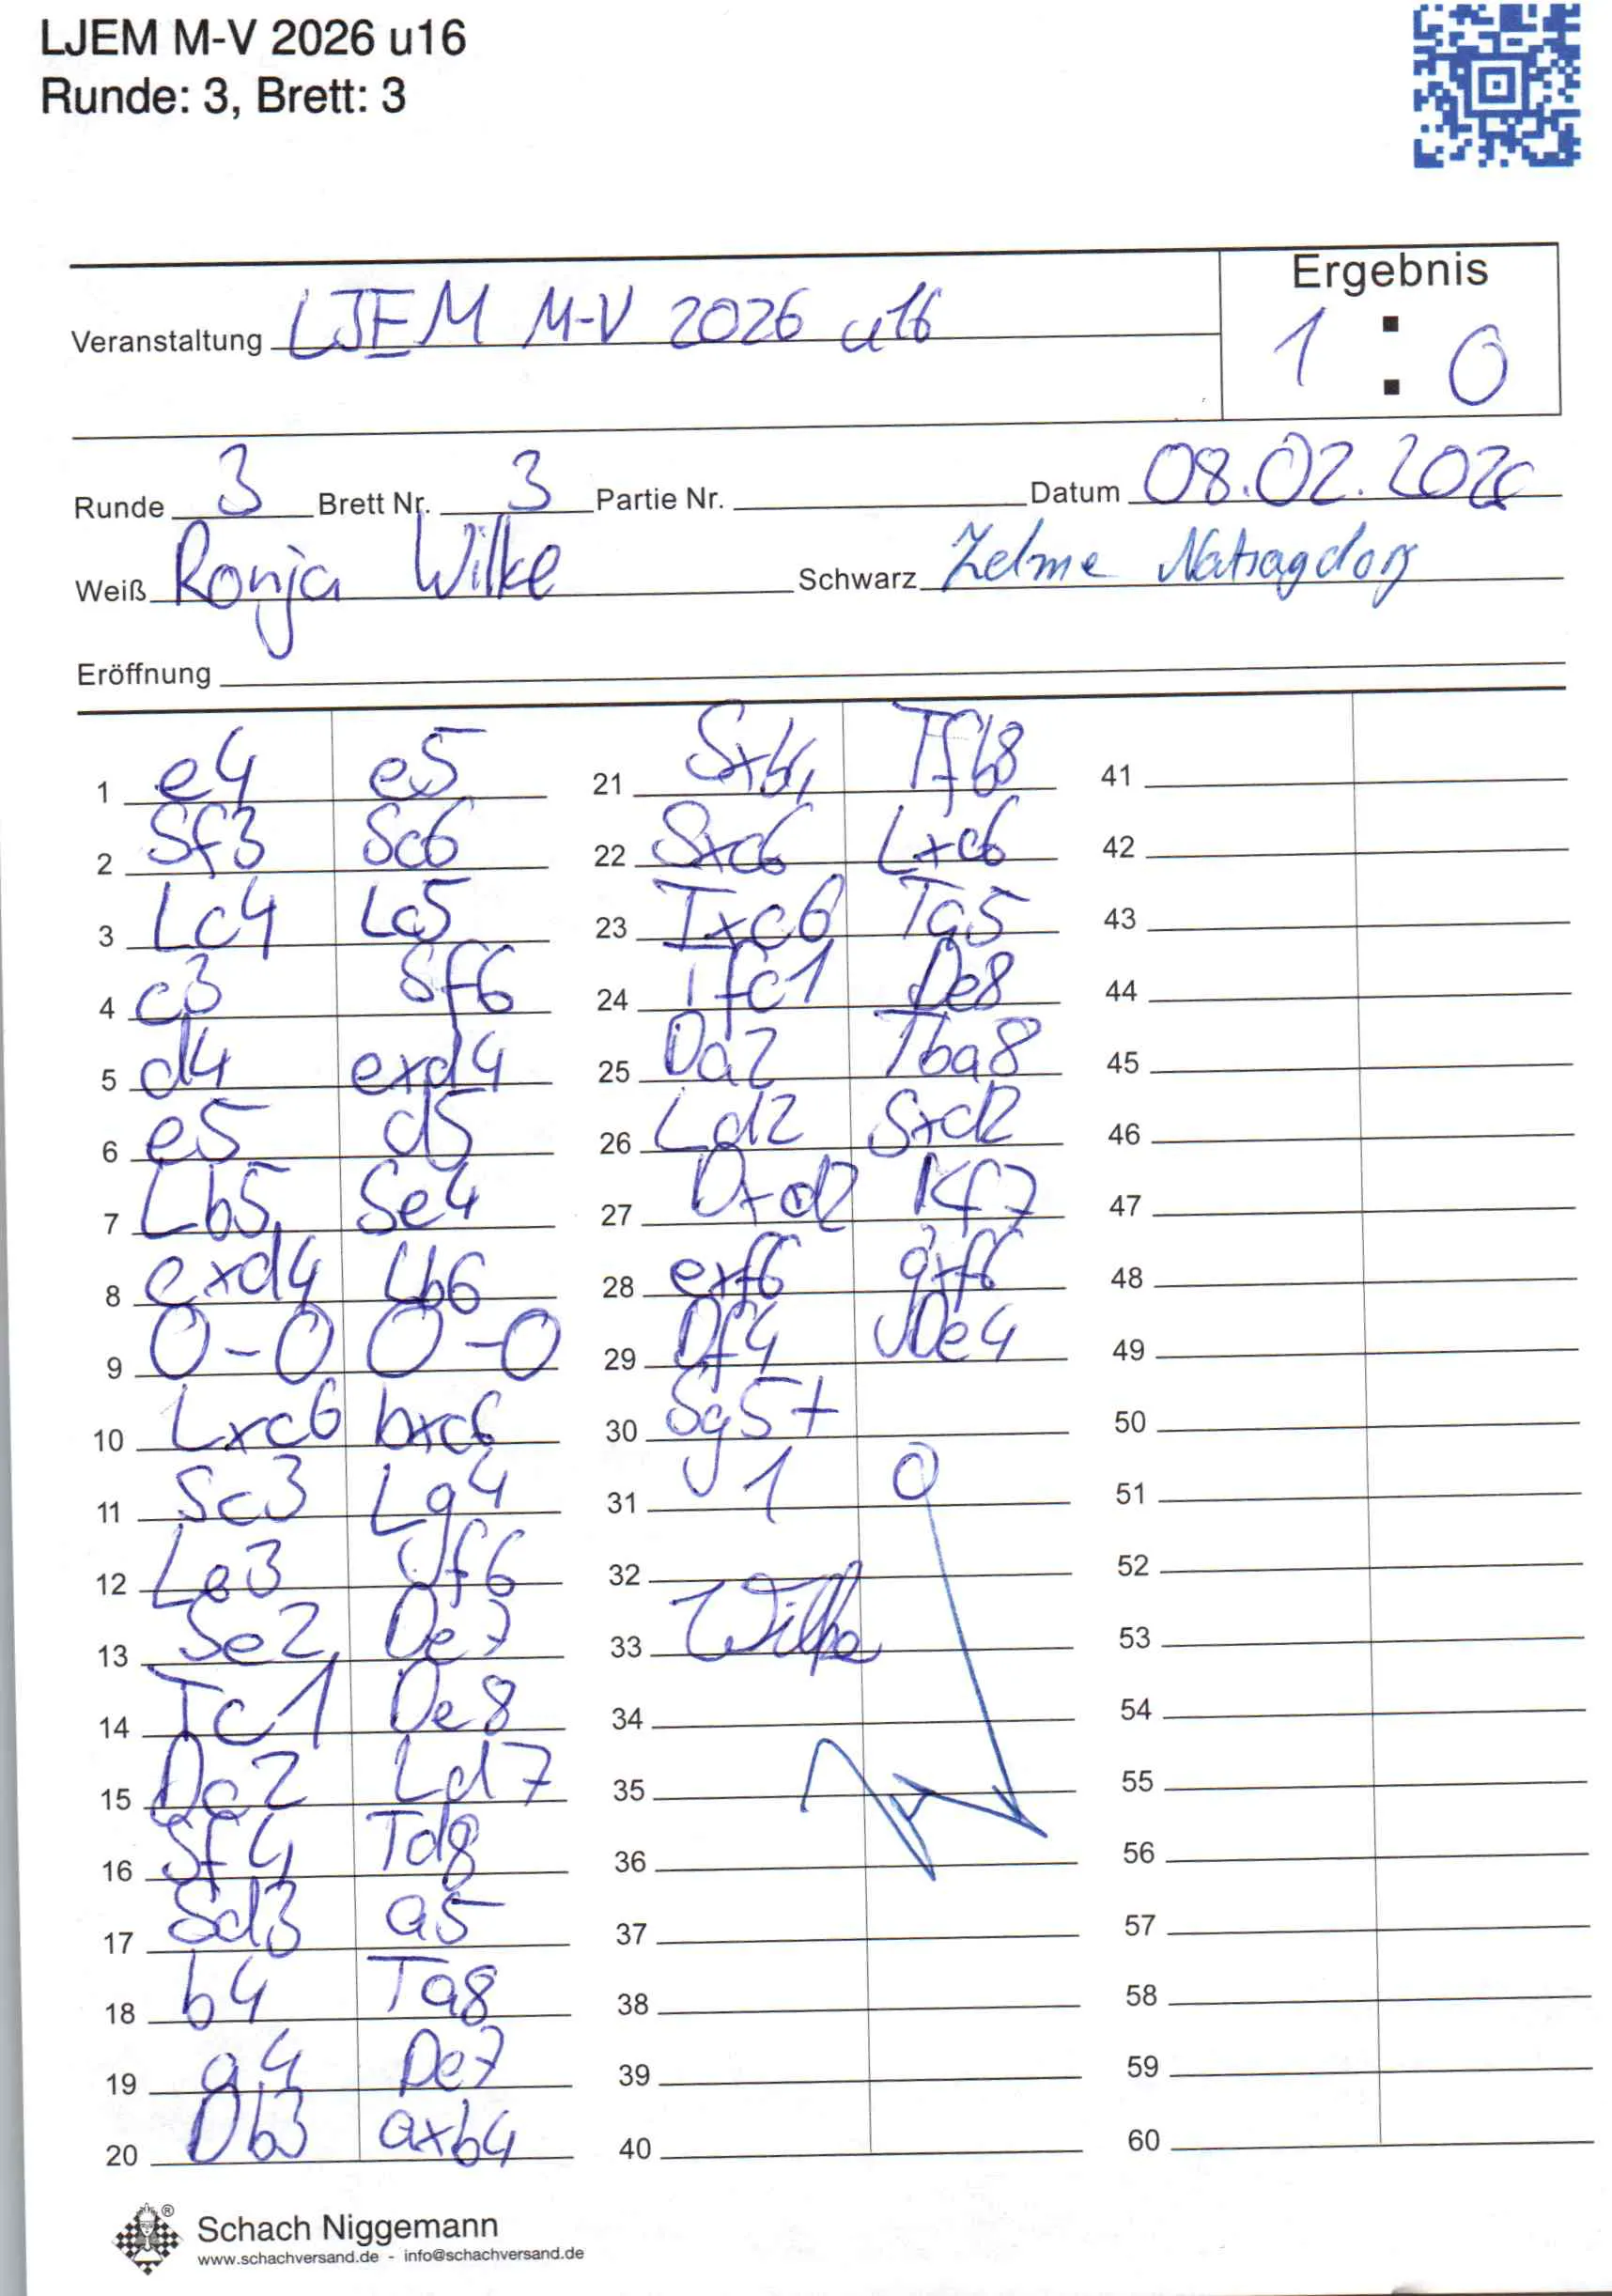 LJEM M-V 2026 u16
Runde: 3, Brett: 3
Ergebnis
Veranstaltung LJEM M-V 2026 u16
1 : 0
Runde 3 Brett Nr. 3 Partie Nr. Datum 08.02.2026
Weiß Ronja Wilke Schwarz Zelme
Eröffnung
1 e4 e5 21 Sxb4 Tfb8 41
2 Sf3 Sc6 22 Sxc6 Lxc6 42
3 Lc4 Lc5 23 Txc6 Ta5 43
4 c3 Sf6 24 Tfc1 De8 44
5 d4 exd4 25 Da2 Tba8 45
6 e5 d5 26 Ld2 Sxd2 46
7 Lb5 Se4 27 Dxd2 Kf7 47
8 cxd4 Lb6 28 exf6 gxf6 48
9 O-O O-O 29 Df4 De4 49
10 Lxc6 bxc6 30 Sg5+ 50
11 Sc3 Lg4 31 1 0 51
12 Le3 f6 32 52
13 Se2 De7 33 Wilke 53
14 Tc1 De8 34 54
15 Dc2 Ld7 35 55
16 Sf4 Td8 36 56
17 Sd3 a5 37 57
18 b4 Ta8 38 58
19 a4 De7 39 59
20 Db3 axb4 40 60
Schach Niggemann
www.schachversand.de - info@schachversand.de